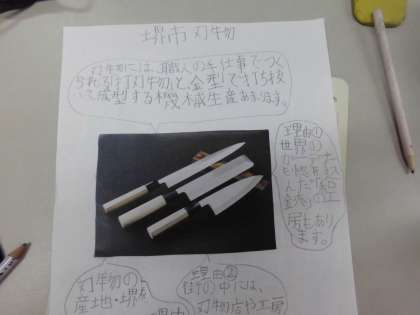 堺市 刃物
刃物には、職人の手仕事でつく
られる「打刃物」と、金型で打ち抜
いて成型する機械生産あります。
理由①
世界の
ガーデナー
も
鋏」の工
房もあり
ます。
刃物の
産地・堺
理由②
街の中には、
刃物店や工房